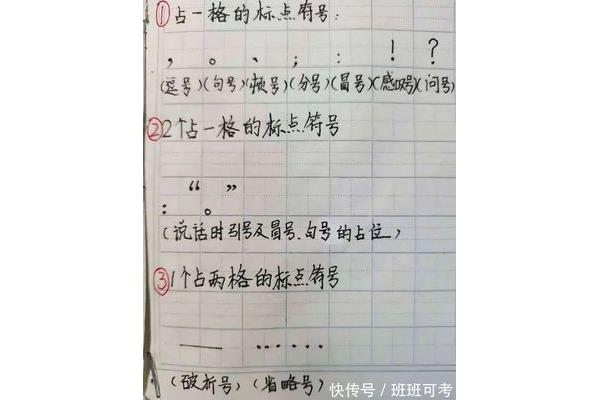 ①占一格的标点符号:
，。、；：！？
(逗号)(句号)(顿号)(分号)(冒号)(感叹号)(问号)
②2个占一格的标点符号
：“。”
(说话时引号及冒号、句号的占位)
③1个占两格的标点符号
—— ……
(破折号)(省略号)
快传号/班班可考